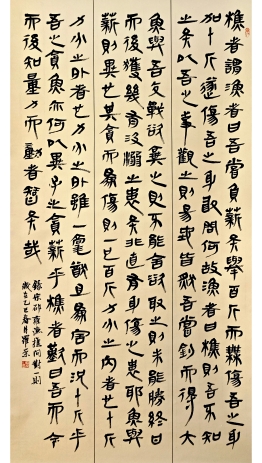 樵者謂漁者曰吾嘗負薪矣舉百斤而無傷吾之身
加十斤遂傷吾之身敢問何故漁者曰樵則吾不知
之矣以吾之事觀之則易地皆然吾嘗釣而得大
魚與吾交戰欲棄之則不能舍欲取之則未能勝終日
而後獲幾有沒溺之患矣非直有身傷之患耶魚與
薪則異也其貪而為傷則一也百斤力分之內者也十斤
力分之外者也力分之外雖一毫猶且為害而況十斤乎
吾之貪魚亦何以異子之貪薪乎樵者歎曰吾而今
而後知量力而動者智矣哉
錄宋邵雍漁樵問對一則
歲在乙巳春月